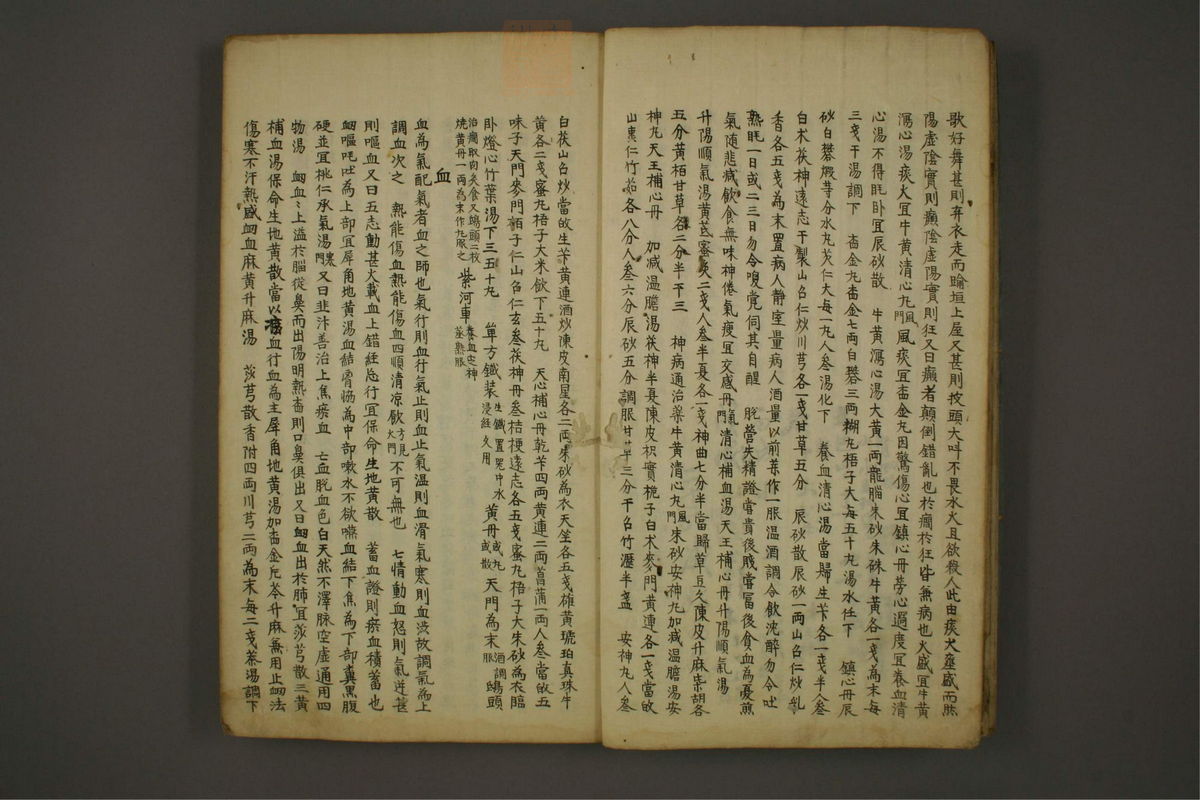 歌好舞甚則弃衣走而踰垣上屋又甚則披頭大叫不畏水火且欲殺人此由痰火壅盛而然
陽虛陰實則癲陰虛陽實則狂又曰癲者顛倒錯亂也於癎於狂皆無病也火盛宜牛黃
瀉心湯痰火宜牛黃清心丸風門風痰宜壺金丸因驚傷心宜鎮心丹勞心過度宜養血清
心湯不得睡卧宜辰砂散 牛黃瀉心湯大黃一兩龍腦朱砂朱硃牛黃各一戔為末每
三戔干湯調下 壺金丸壺金七兩白礬三兩糊丸梧子大每五十丸湯水任下 鎮心丹辰
砂白礬煆等分水丸芡仁大每一丸人叄湯化下 養血清心湯當歸生芐各一戔半人叄
白朮茯神遠志干製山召仁炒川芎各一戔甘草五分 辰砂散辰砂一兩山召仁炒乳
香各五戔為末置病人静室量病人酒量以前葉作一服温酒調令飲沈醉勿令吐
熟睡一日或二三日勿令喚覺伺其自醒 脫營失精證當貴後賤嘗冨後貧血為憂煎
氣隨悲减飲食無味神倦氣瘦宜交感丹氣門清心補血湯天王補心丹升陽順氣湯
升陽順氣湯黃芪蜜灸二戔人叄半夏各一戔神曲七分半當歸草豆久陳皮升麻柴胡各
五分黃栢甘草各二分半干三 神病通治藥牛黃清心丸風門朱砂安神丸加减温膽湯安
神丸天王補心丹 加减温膽湯茯神半夏陳皮枳實梔子白朮麥門黃連各一戔當皈
山棗仁竹茹各八分人叄六分辰砂五分調服甘草三分干召竹瀝半盞 安神丸人叄
白茯山召炒當皈生芐黃連酒炒陳皮南星各二兩朱砂為衣天竺各五戔雄黃琥珀真珠牛
黃各二戔蜜丸梧子大米飲下五十丸 天心補心丹乾芐四兩黃連二兩菖蒲一兩人叄當皈五
味子天門麥門栢子仁山召仁玄叄茯神丹叄桔梗遠志各五戔蜜丸梧子大朱砂為衣臨
卧燈心竹葉湯下三五十丸 單方鐵装生鐵置器中水浸經久用 黃丹或丸或散 天門為末酒調服 鴟頭
治癎取肉灸食又鴟頭二枚燒黃丹一兩為末作丸服之 紫河車養血定神蒸熟服
血
血為氣配氣者血之師也氣行則血行氣止則血止氣温則血滑氣寒則血澁故調氣為上
調血次之 熱能傷血熱能傷血四順清凉飲方見火門不可無也 七情動血怒則氣逆甚
則嘔血又曰五志動甚火載血上錯経忩行宜保命生地黃散 蓄血證則瘀血積蓄也
衂嘔吐為上部宜犀角地黃湯血結膏恊為中部嗽水不欲嚥血結下焦為下部糞黑腹
硬並宜桃仁承氣湯寒門又曰韭汴善治上焦瘀血 亡血脫血色白天然不澤脉空虛通用四
物湯 衂血〻上溢於腦從鼻而出陽明熱壺則口鼻俱出又曰衂血出於肺宜茨芎散三黃
補血湯保命生地黃散當以散血行血為主犀角地黃湯加壺金片芩升麻無用止衂法
傷寒不汗熱盛衂血麻黃升麻湯 茨芎散香附四兩川芎二兩為末每二戔茶湯調下